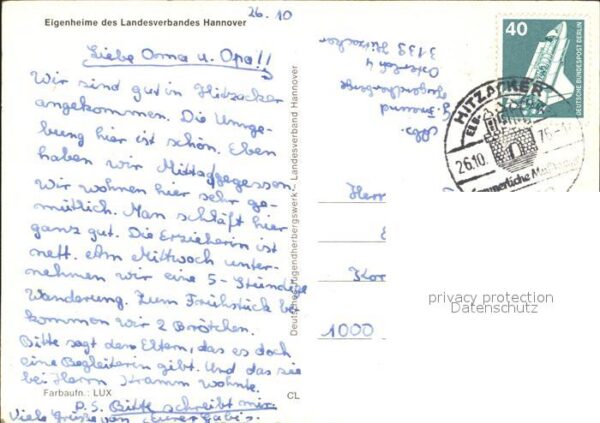 26.10
Eigenheime des Landesverbandes Hannover
Liebe Oma u. Opa!!
Wir sind gut in Hitzacker
angekommen. Die Umge-
bung hier ist schön. Eben
haben wir Mittaggegessen.
Wir wohnen hier sehr ge-
mütlich. Man schläft hier
ganz gut. Die Erzieherin ist
nett. Am Mittwoch unter-
nehmen wir eine 5-Stündige
Wanderung. Zum Frühstück be-
kommen wir 2 Brötchen.
Bitte sagt den Eltern, das es doch
eine Begleiterin gibt. Und das sie
bei Herrn Kramm wohnte.
P.S. Bitte schreibt mir
Viele Grüße von Eurer Gabi.
Farbaufn.: LUX
CL
Deutsches Jugendherbergswerk – Landesverband Hannover
Abs.
3139 Hitzacker
40
DEUTSCHE BUNDESPOST BERLIN
HITZACKER
26.10.
Herr
Kor
1000
privacy protection
Datenschutz